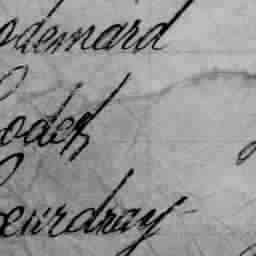 odemard
oder
œurdray